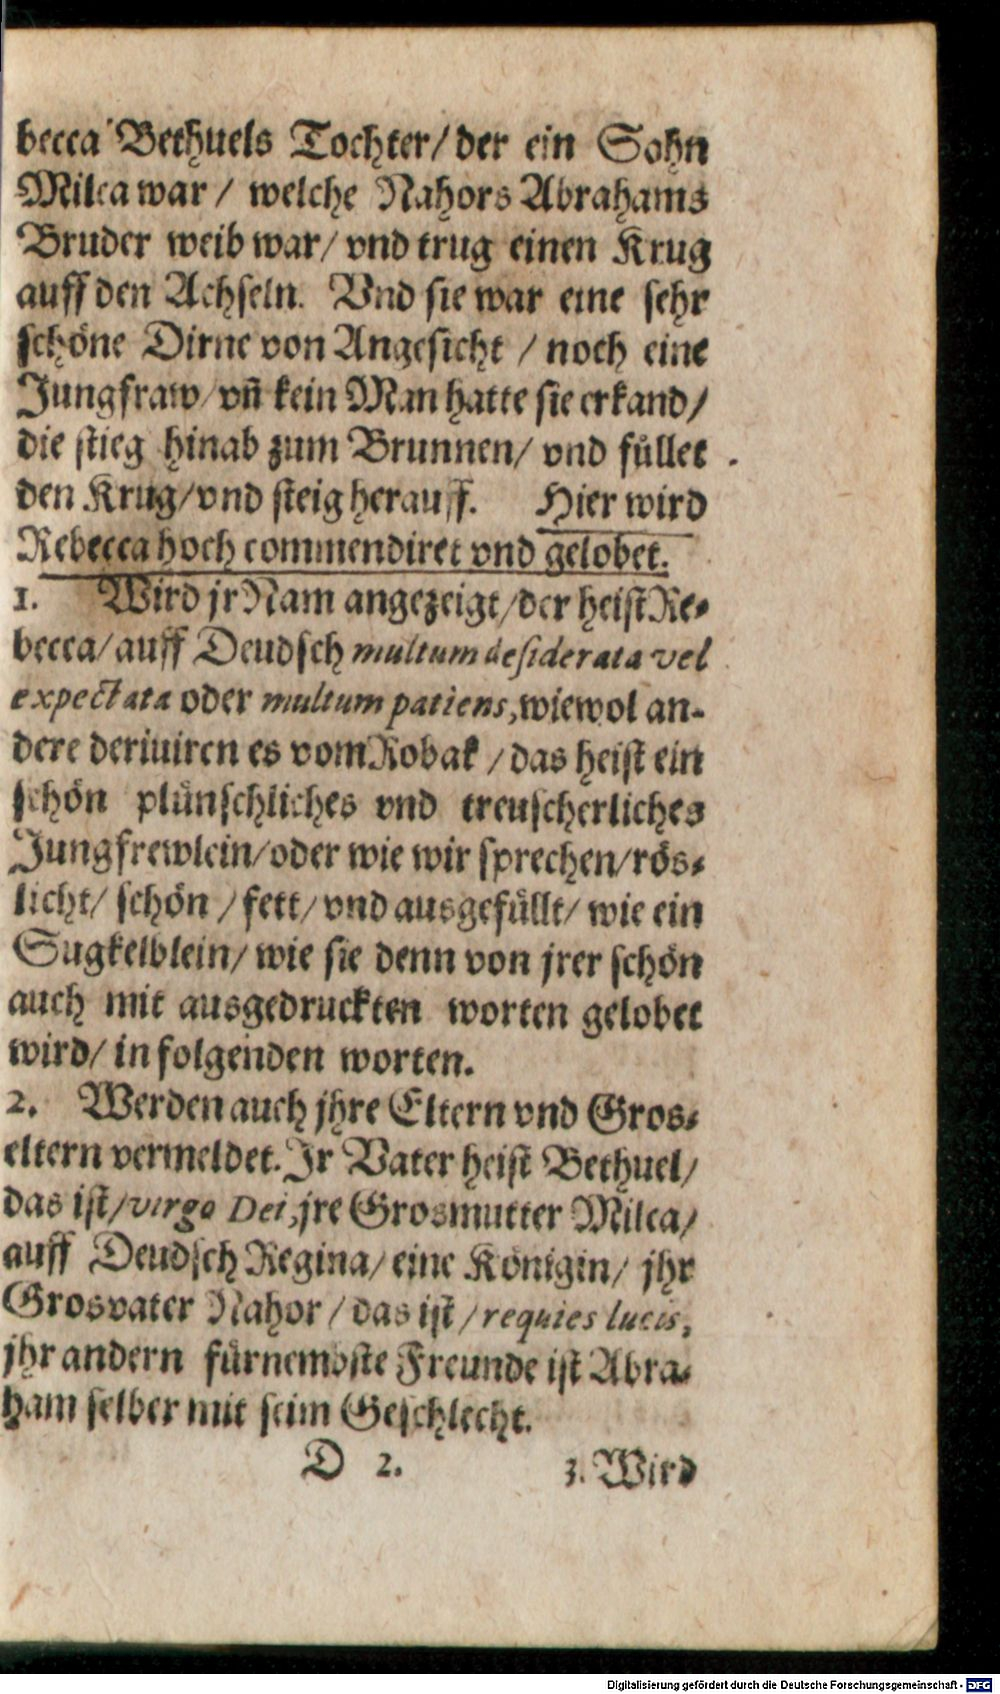 becca Bethuels Tochter/ der ein Sohn
Milca war / welche Nahors Abrahams
Bruder weib war/ vnd trug einen Krug
auff den Achseln. Vnd sie war eine sehr
schöne Dirne von Angesicht / noch eine
Jungfraw/ vñ kein Man hatte sie erkand/
die stieg hinab zum Brunnen/ vnd füllet
den Krug/ vnd steig herauff. Hier wird
Rebecca hoch commendiret vnd gelobet.
1. Wird jr Nam angezeigt/ der heist Re-
becca/ auff Deudsch multum desiderata vel
expectata oder multum patiens, wiewol an-
dere deriuiren es vom Robak / das heist ein
schön plünschliches vnd treuscherliches
Jungfrewlein/ oder wie wir sprechen/ rös-
licht/ schön / fett/ vnd ausgefüllt/ wie ein
Sugkelblein/ wie sie denn von jrer schön
auch mit ausgedruckten worten gelobet
wird/ in folgenden worten.
2. Werden auch jhre Eltern vnd Gros-
eltern vermeldet. Jr Vater heist Bethuel/
das ist/ virgo Dei, jre Grosmutter Milca/
auff Deudsch Regina/ eine Königin/ jhr
Grosvater Nahor / das ist / requies lucis,
jhr andern fürnembste Freunde ist Abra-
ham selber mit seim Geschlecht.
D 2. 3. Wird
Digitalisierung gefördert durch die Deutsche Forschungsgemeinschaft - DFG